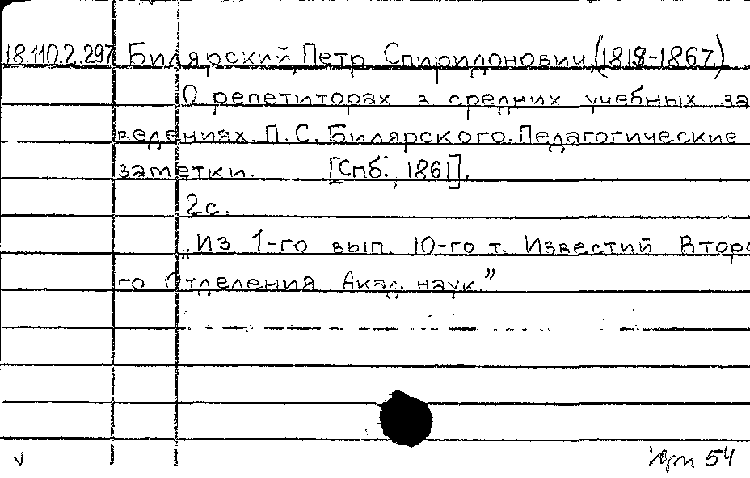 18.110.2.297 Билярский, Петр Спиридонович, (1818-1867)
О репетиторах в средних учебных за
ведениях. П.С. Билярского. Педагогические
заметки. [Спб., 1861].
2 с.
„Из 1-го вып. 10-го т. Известий Второ
го Отделения Акад. наук.”
54